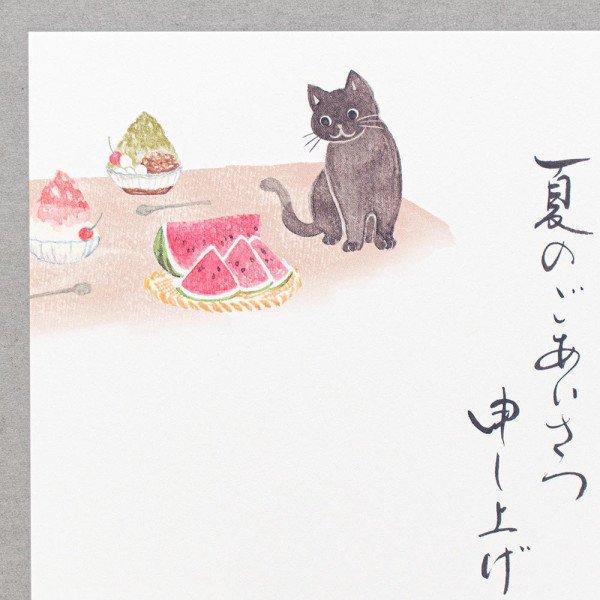 夏のごあいさつ
申し上げ